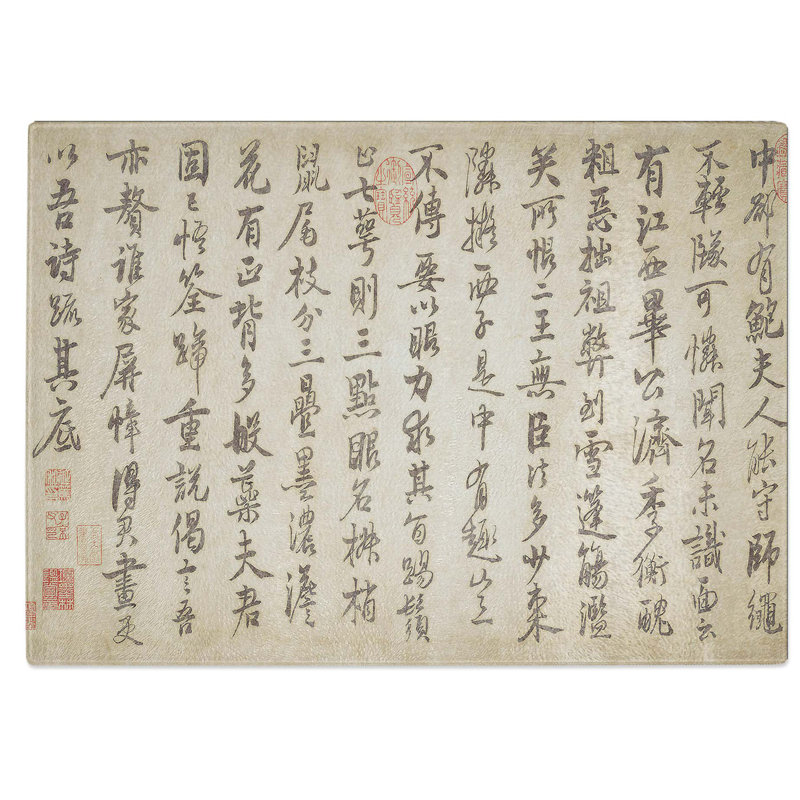 中卻有鮑夫人能守師繩
不輕墜可憐聞名未識面云
有江西畢公濟季衡醜
粗惡拙祖弊到雪蓬觴濫
矣所恨二王無臣法多少東
鄰擬西子是中有趣豈
不傳要以眼力求其旨踢鬚
止七萼則三點眼名椒梢
鼠尾枝分三疊墨濃澹
花有正背多般蘂夫君
固已悟筌蹄重說偈言吾
亦贅誰家屏幛得君畫更
以吾詩疏其底